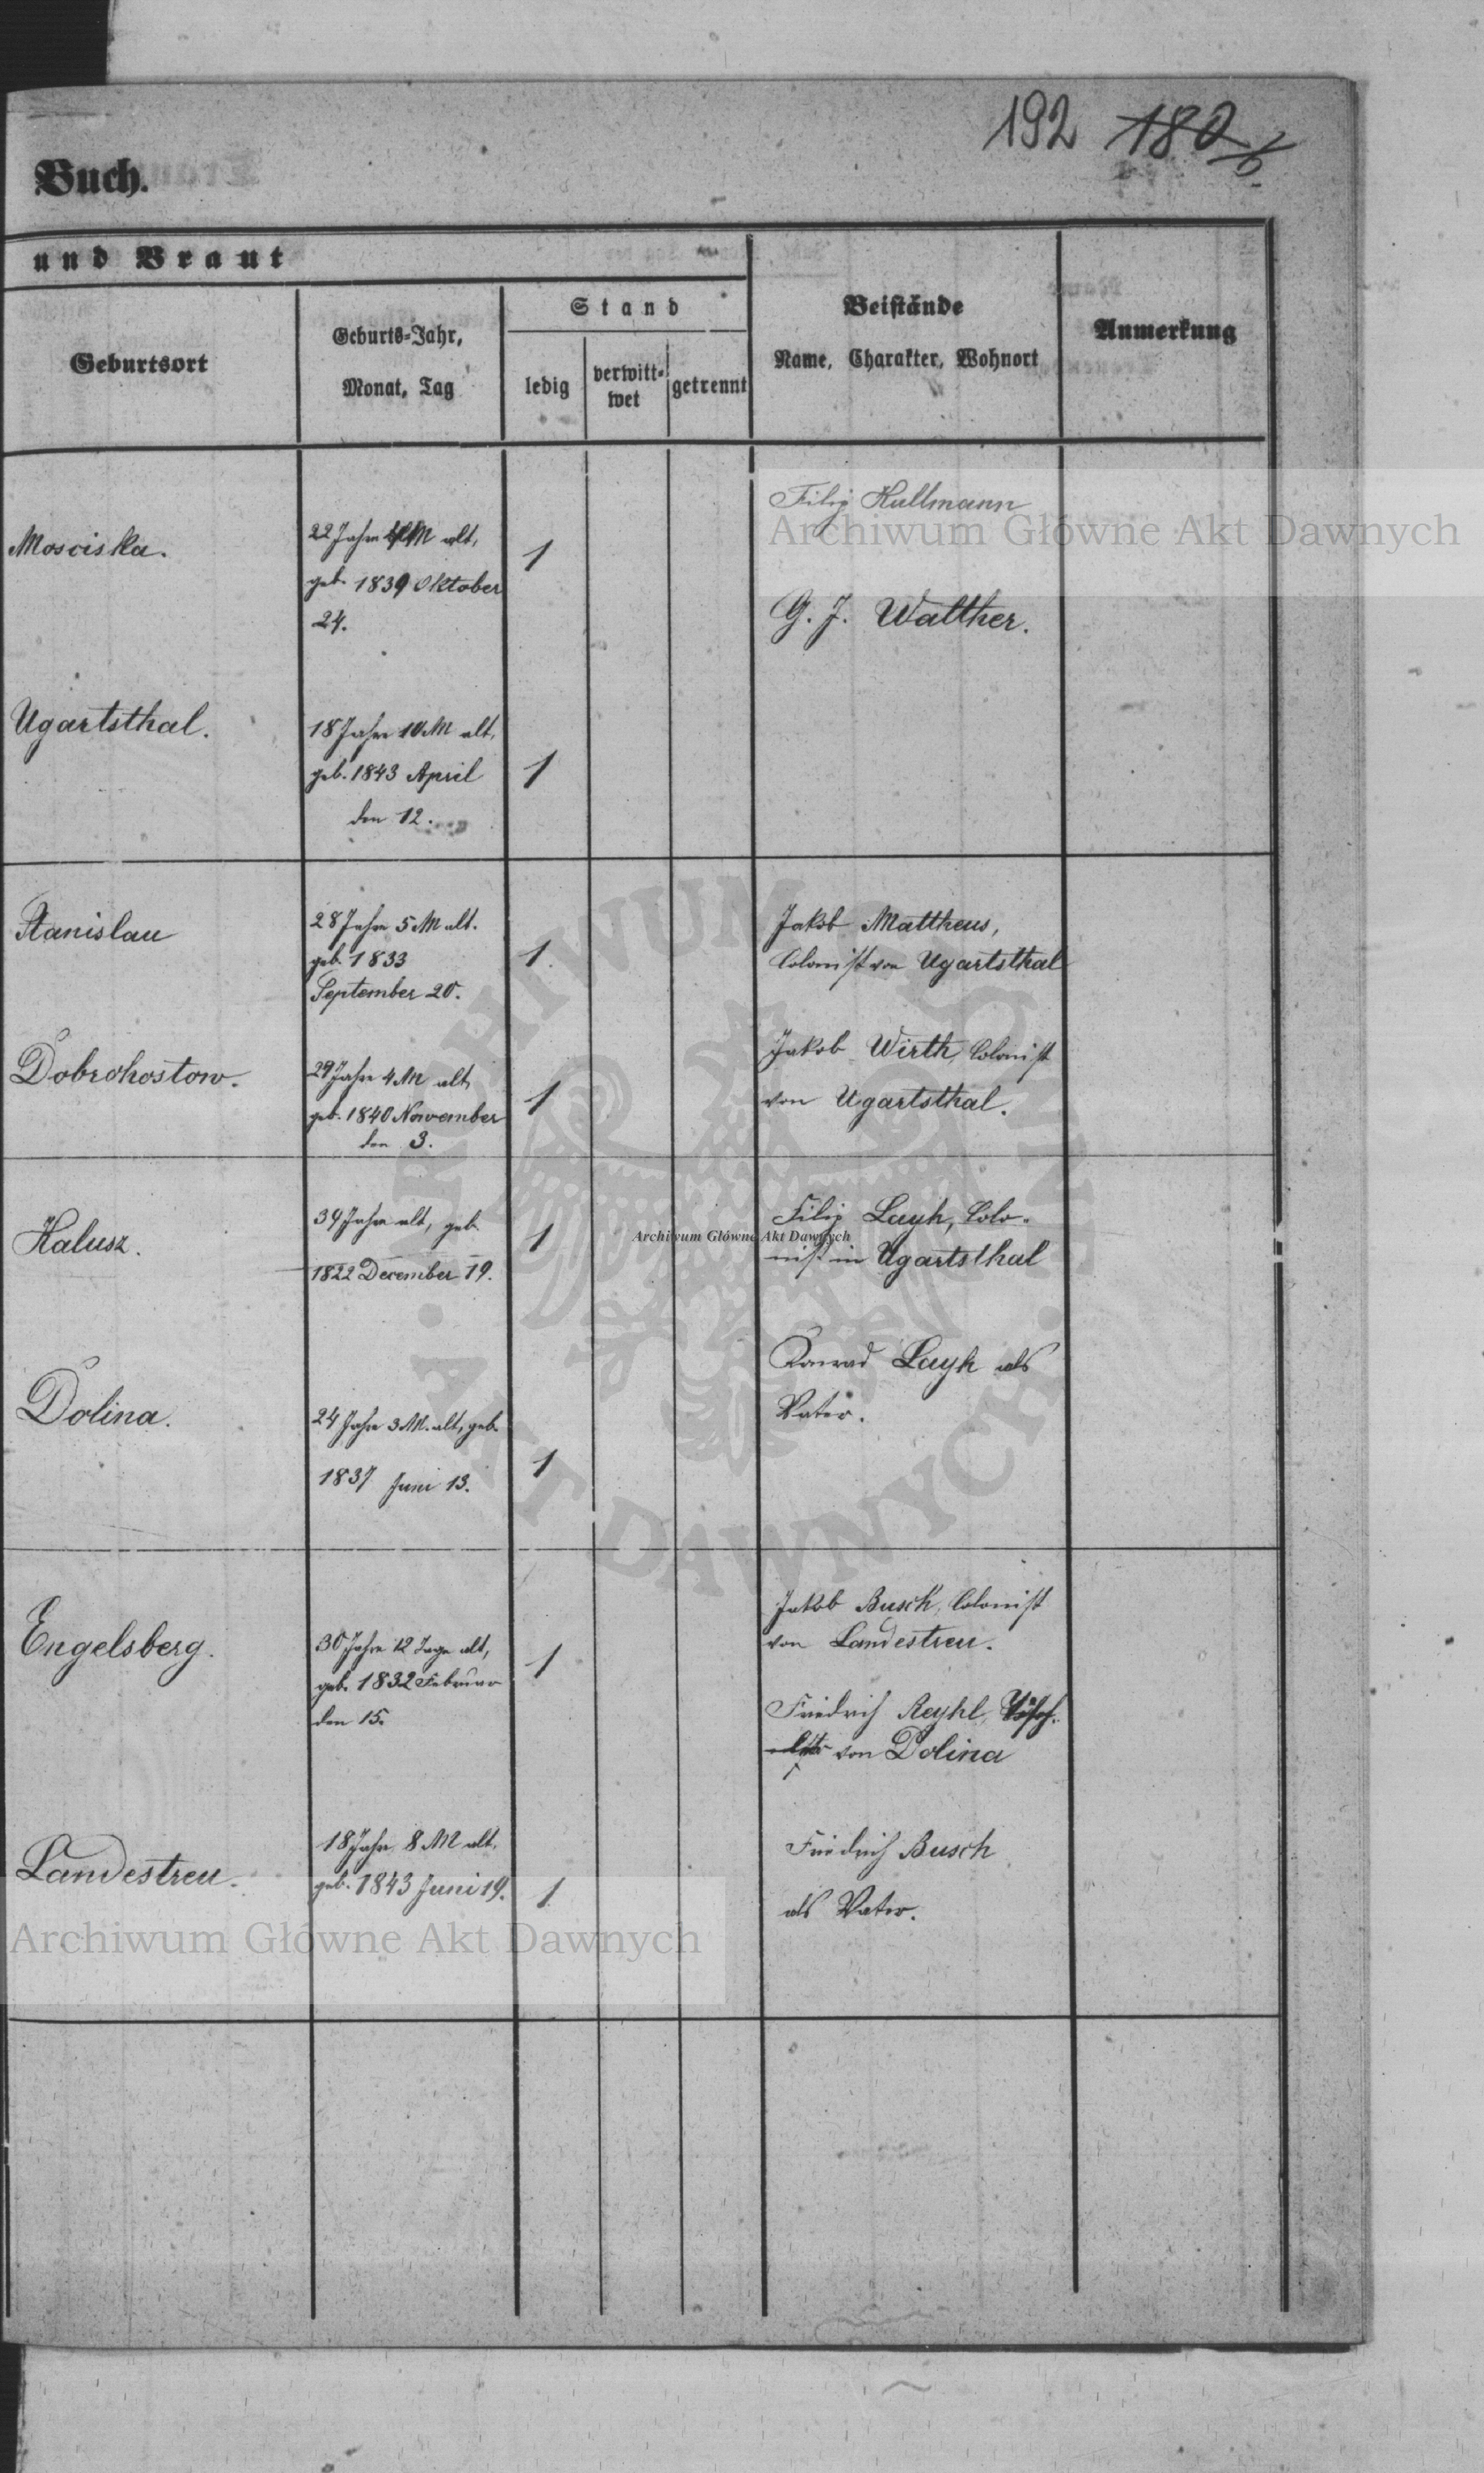 192 180/b.
Buch.
und Braut
Geburtsort
Geburts-Jahr,
Monat, Tag
Stand
ledig
verwitt-
wet
getrennt
Beistände
Name, Charakter, Wohnort
Anmerkung
Mosciska.
22 Jahre M alt,
geb. 1839 Oktober
24.
1
Filip Hullmann
G. J. Walther.
Ugartsthal.
18 Jahre 10 M alt,
geb. 1843 April
den 12.
1
Stanislau
28 Jahre 5 M alt.
geb. 1833
September 20.
1.
Jakob Mattheus,
Colonist von Ugartsthal
Dobrohostow.
Jahre 4 M alt,
geb. 1840 November
den 3.
1
Jakob Wirth, Colonist
von Ugartsthal.
Kalusz.
39 Jahre alt, geb.
1822 December 19.
1
Filip Layh, Colo-
nist in Ugartsthal
Dolina.
24 Jahre 3 M. alt, geb.
1837 Juni 13.
1
Konrad Layh als
Vater.
Engelsberg.
30 Jahre 12 Tage alt,
geb. 1832 Februar
den 15.
1
Jakob Busch, Colonist
von Landestreu.
Friedrich Reyhl,
von Dolina
Landestreu.
18 Jahre 8 M alt,
geb. 1843 Juni 19.
1
Friedrich Busch
als Vater.
Archiwum Główne Akt Dawnych
Archiwum Główne Akt Dawnych
Archiwum Główne Akt Dawnych
ARCHIWUM GŁÓWNE · AKT DAWNYCH ·